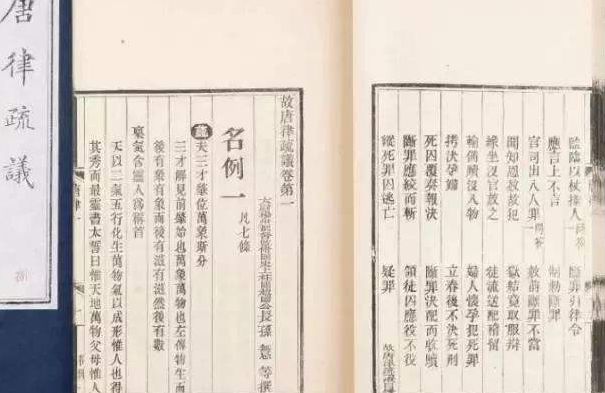 監臨以杖捶人 一問答 斷罪引律令
應言上不言 制勅斷罪
官司出入人罪 一問答 赦前斷罪不當
聞知恩赦故犯 獄結竟取服辯
緣坐沒官放之 徒流送配稽留
輸備贖沒入物 婦人懷孕犯死罪
拷決孕婦 立春後不決死刑
死囚覆奏報決 斷罪決配而收贖
斷罪應絞而斬 領徒囚應役不役
縱死罪囚逃亡 疑罪
故唐律疏議
故唐律疏議卷第一
公長孫無忌等撰
名例一 凡七條
疏夫三才肇位萬象斯分
三才解見前肇始也萬象萬物也左傳物生而
後有象有象而後有滋有滋然後有數
稟氣含靈人爲稱首
天以二氣五行化生萬物氣以成形惟人也得
其秀而最靈書太誓曰惟天地萬物父母惟人
唐律疏議